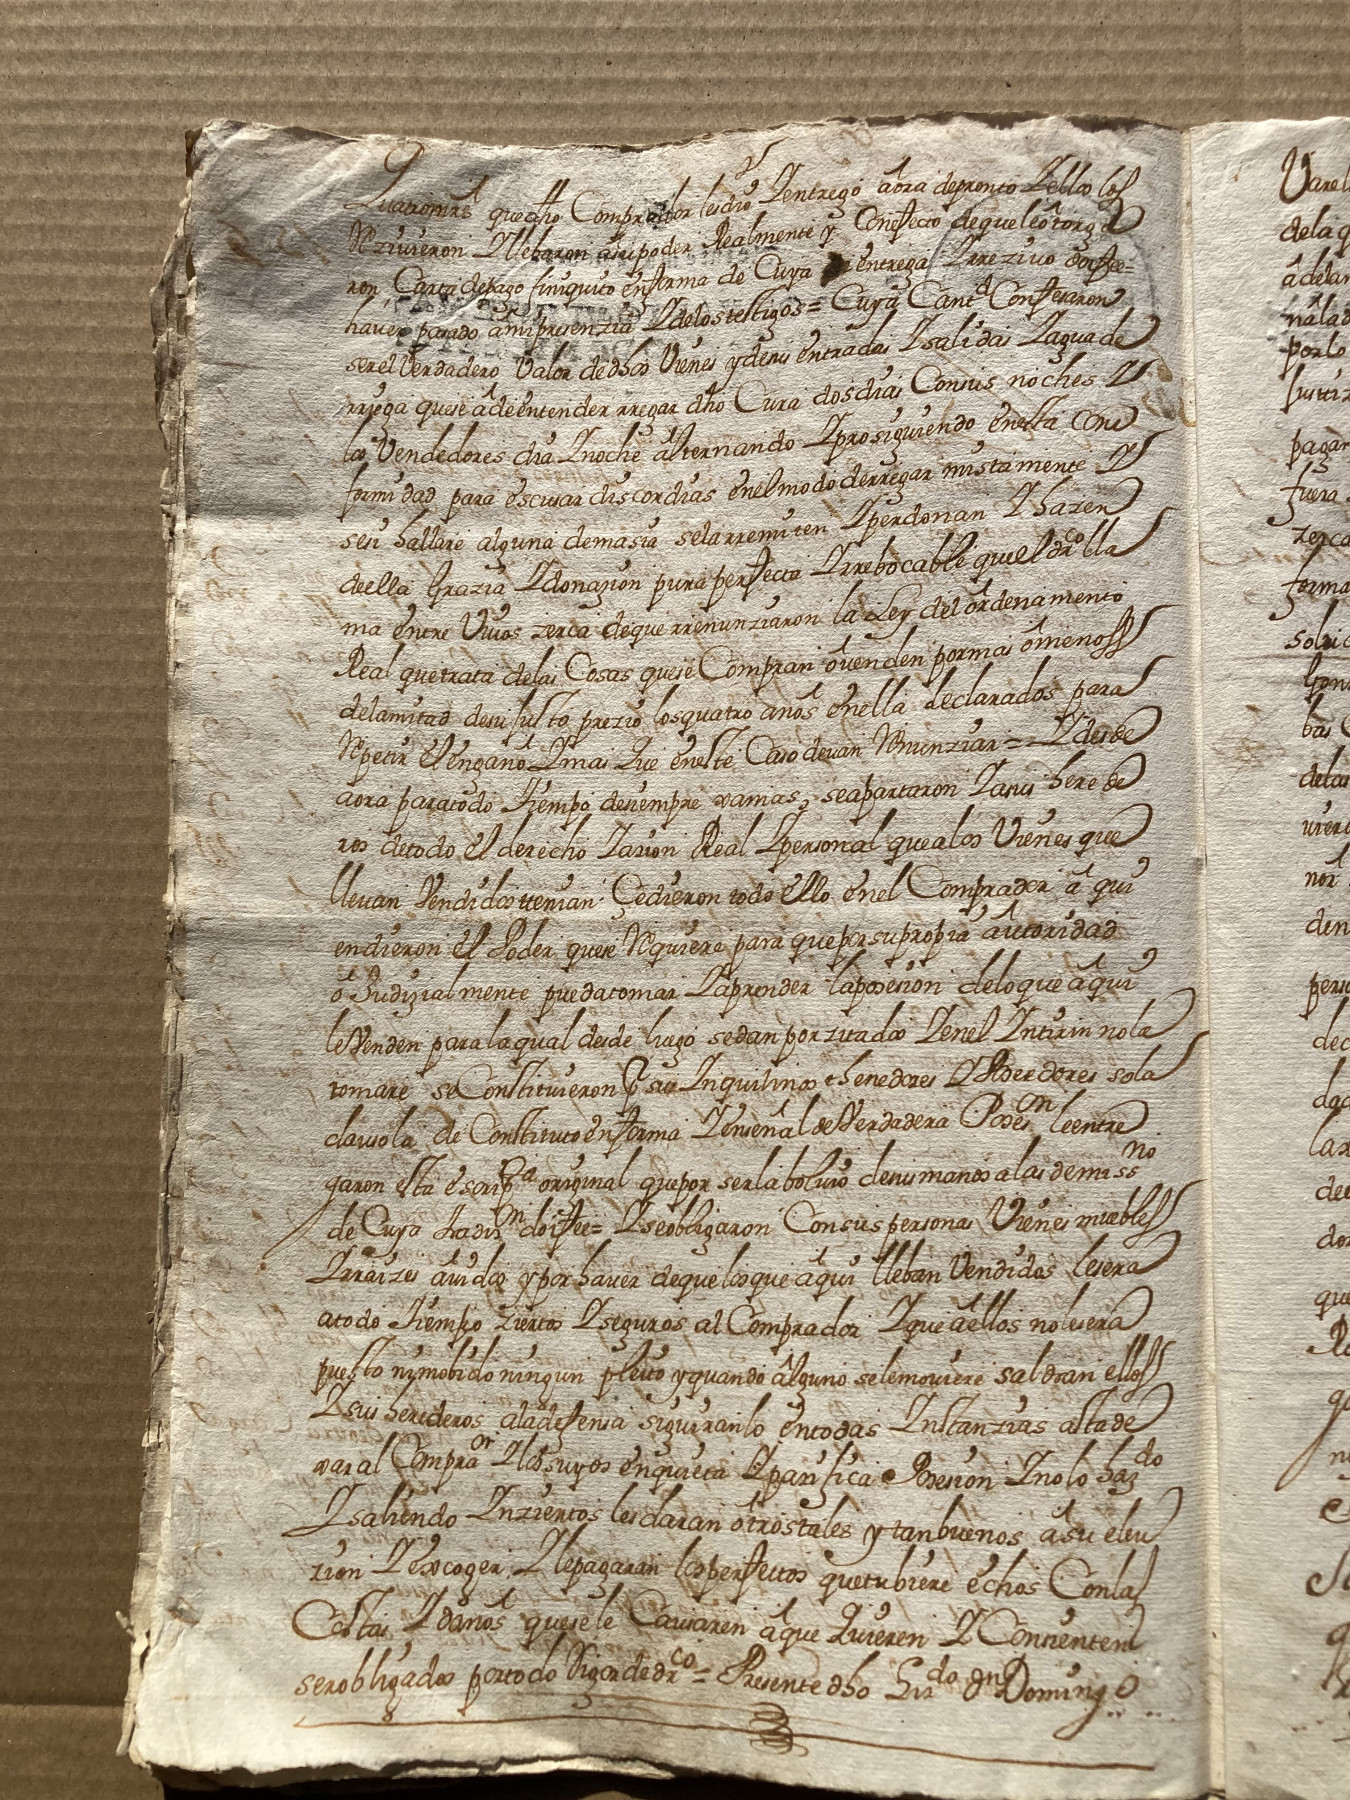 Quatromrs que dho Comprador lesdio Lentrego aora depronto Lellos los
Rezivieron Lllebaron asupoder Realmente y Conefecto dequeleotorga
ron Carta depago finiquito enforma de Cuya entrega Lrrezivo doifee=
haver pasado amipresenzia Ldelostestigos = Cuya Cantd Confesaron
serel Verdadero Valor de dhos Vienes ydesus entradas Lsalidas Lagua de
rriega quese adeentender rregar dho Cura dosdias Consus noches L
los Vendedores dia Lnoche alternando Lprosiguiendo enesta Con
formidad para escusar discordias enelmodo derregar mistamente L
sesi hallare alguna demasia selarremiten Lperdonan Lhazen
della Grazia Ldonazion pura perfecta Lrrebocable queel drco lla
ma entre Vivos zerca deque rrenunziaron la Ley del ordenamento
Real quetrata delas Cosas quese Compran ovenden pormas omenoss
delamitad desu justo prezio losquatro anos enella declarados para
Repetir el engano Lmas que eneste Caso devan Renunziar = Ldesde
aora paratodo tiempo desiempre xamas, seapartaron Lasus herede
ros detodo el derecho Lazion Real Lpersonal quealos Vienes que
llevan Vendidos ttenian. Cedieron todo ello enel Comprador a qui
endieron el Poder quese Requiere para quepersupropia autoridad
o Judizialmente puedatomar Laprender laposesion deloque aqui
leVenden paralaqual desde luego sedan porzitados Lenel Lnterin nola
tomare se Constituieron por sus Lnquilinos thenedores L Poerdores sola
clausola de Constituto enforma Lensenal deVerdadera Posesn leentre
garon esta escripa original quepor serlabolvio desusmanos alas demiss no
de Cuya tradizn doifee= Lseobligaron Consus personas Vienes muebless
Lrraizes avidos yporhaver dequelosque aqui lleban Vendidos lesera
atodo tiempo ziertos Lseguros al Comprador Lque aellos nolesera
puesto nimobido ningun pleito yquando alguno selemoviere saldran elloss
Lsus herederos aladefensa siguiranlo entodas Lnstanzias asta de
xar al Comprar Llossuyos enquieta Lpazifica Posesion Lnolo hazdo
Lsaliendo Lnziertos lesdaran otrostales y tanbuenos asu eleu
zion Lescoger Llepagaran losperfectos quetubiere echos Conlas
Costas Ldanos quesele Causaren aque quieren LConsienten
serobligados portodo Rigor de drco = Presente dho Lirdo dn Domingo